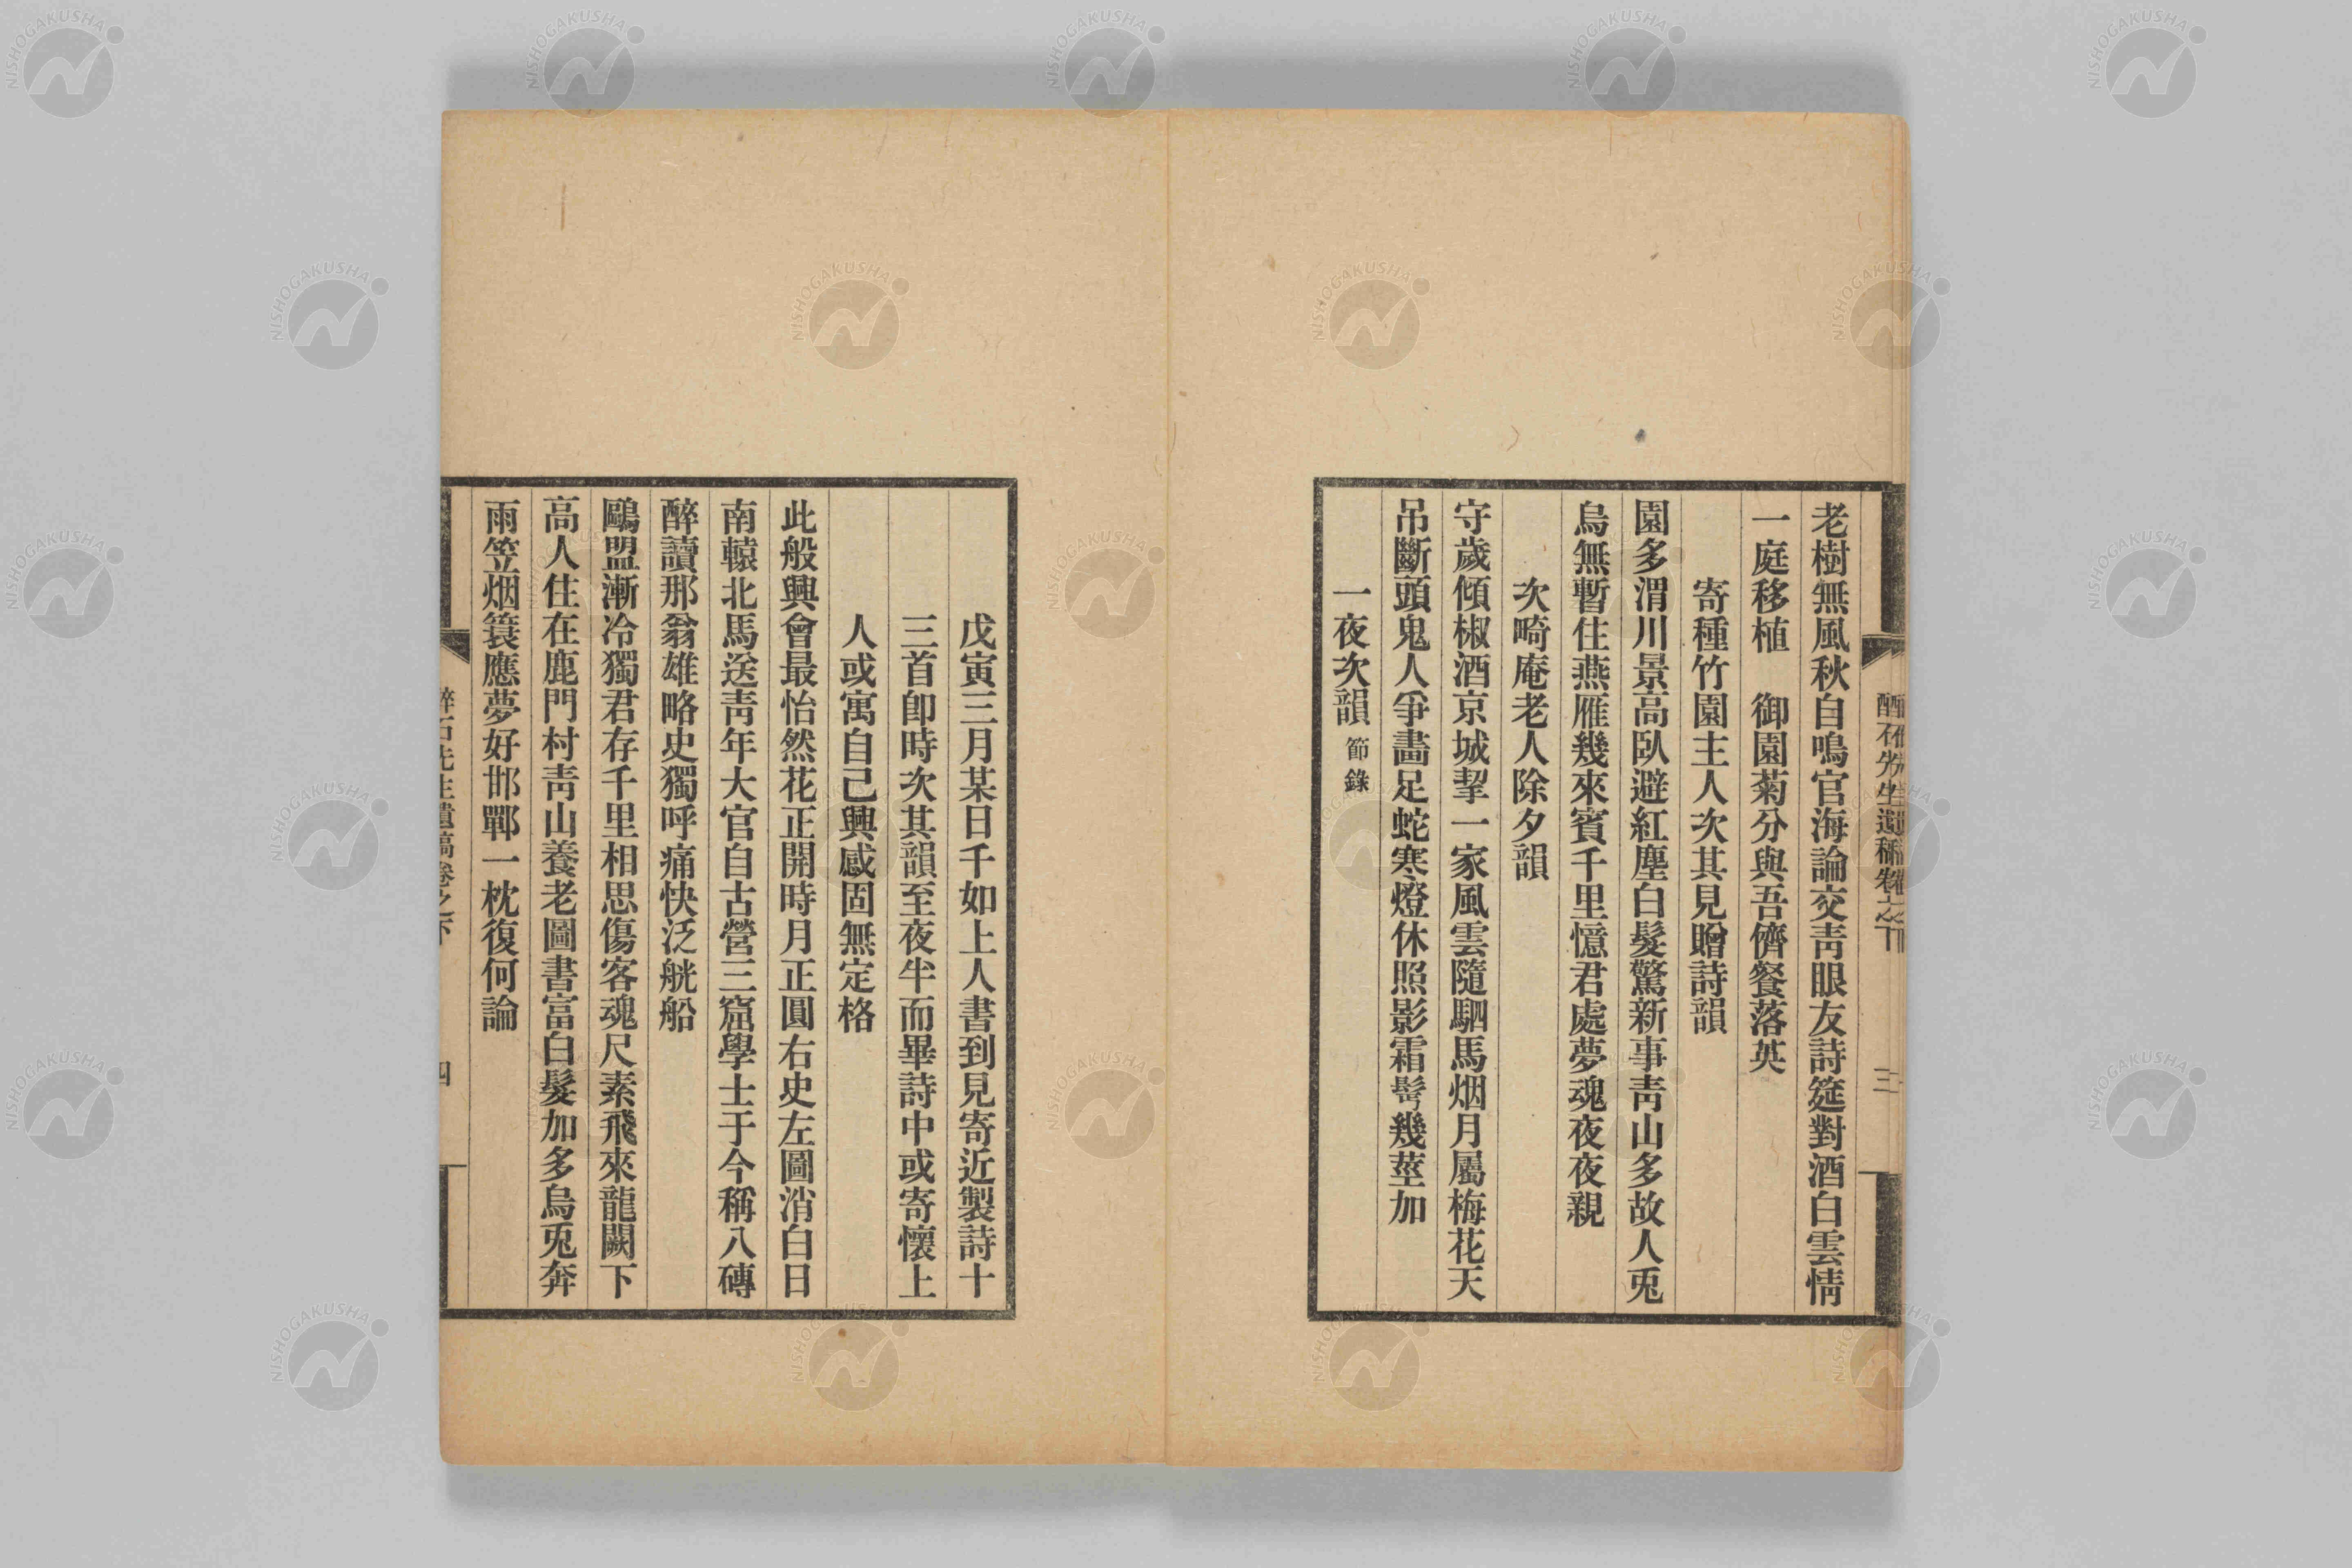 老樹無風秋自鳴官海論交靑眼友詩筵對酒白雲情
一庭移植　御園菊分與吾儕餐落英
寄種竹園主人次其見贈詩韻
園多渭川景高臥避紅塵白髮驚新事靑山多故人兎
烏無暫住燕雁幾來賓千里憶君處夢魂夜夜親
次畸庵老人除夕韻
守歲傾椒酒京城挈一家風雲隨駟馬烟月屬梅花天
吊斷頭鬼人爭畵足蛇寒燈休照影霜鬢幾莖加
一夜次韻 節錄
戊寅三月某日千如上人書到見寄近製詩十
三首卽時次其韻至夜半而畢詩中或寄懷上
人或寓自己興感固無定格
此般興會最怡然花正開時月正圓右史左圖消白日
南轅北馬送靑年大官自古營三窟學士于今稱八磚
醉讀那翁雄略史獨呼痛快泛觥船
鷗盟漸冷獨君存千里相思傷客魂尺素飛來龍闕下
高人住在鹿門村靑山養老圖書富白髮加多烏兎奔
雨笠烟簑應夢好邯鄲一枕復何論
醉石先生遺稿卷之下
四
NISHOGAKUSHA